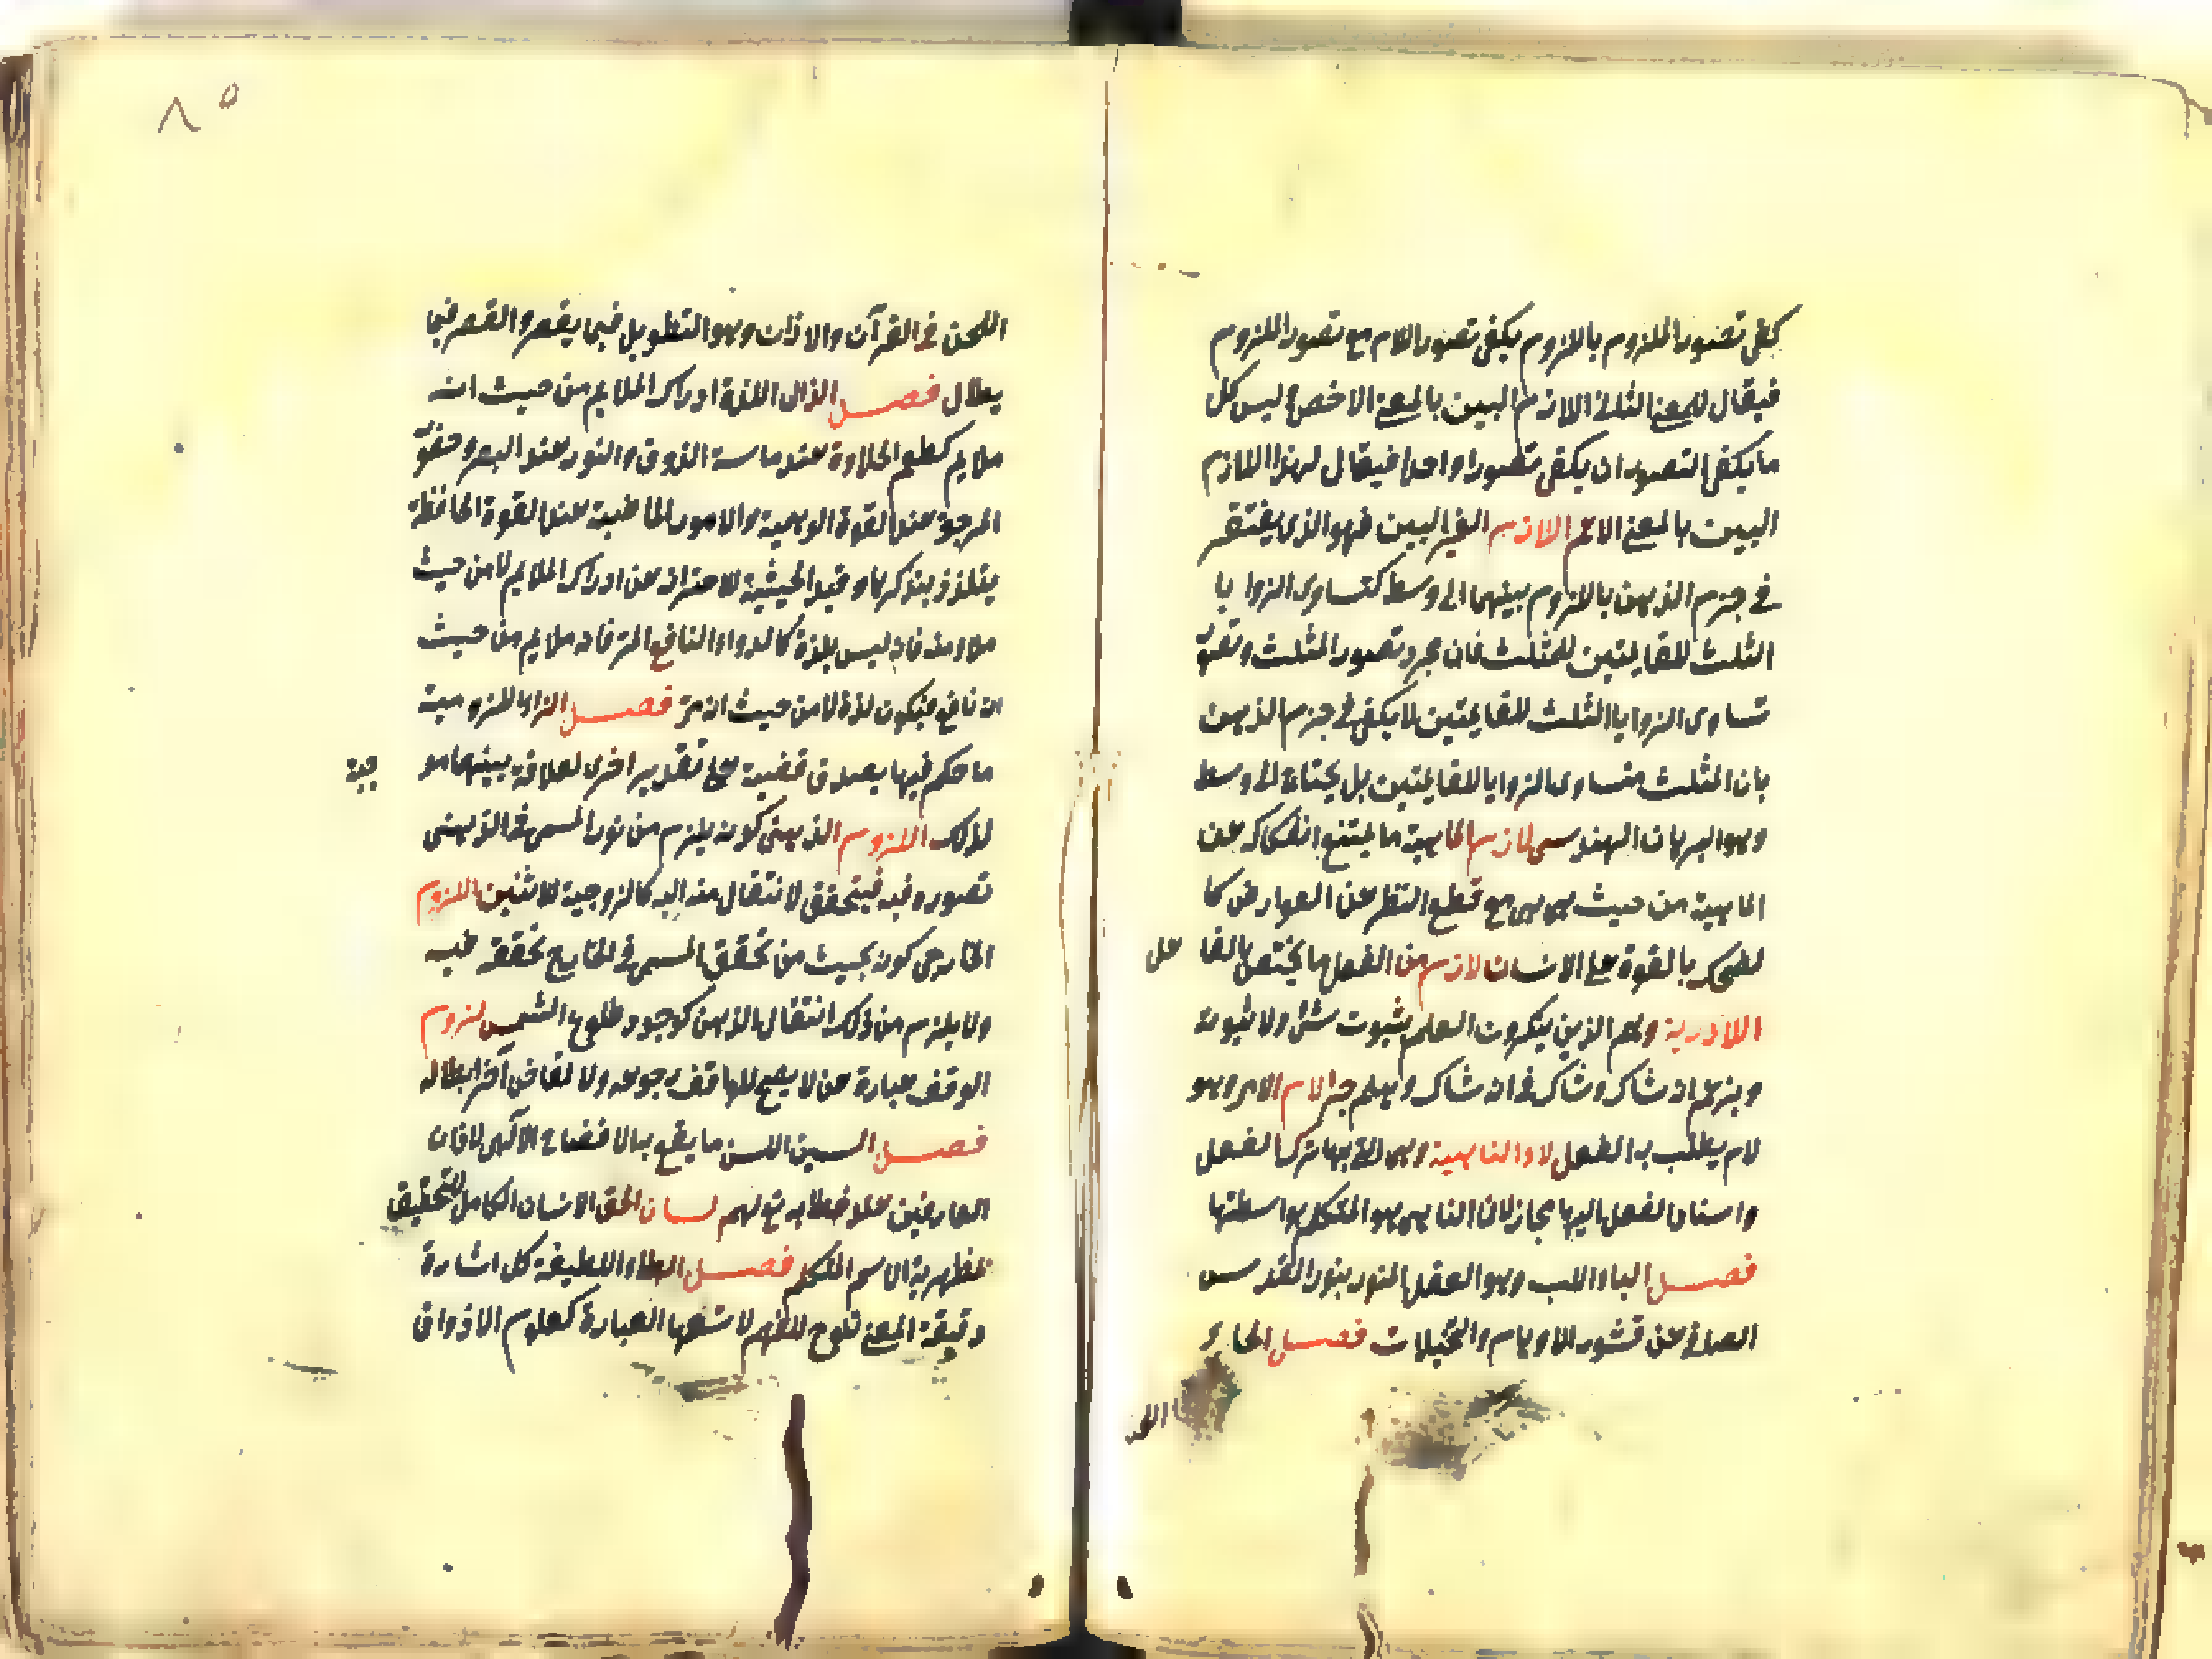 كفى تصور الملزوم باللزوم يكفى تصور اللازم مع تصور الملزوم
فيقال للمعنى الثانى اللازم البين بالمعنى الاخص وليس كل
ما يكفى التصوران يكفى تصورا واحدا فيقال لهذا اللازم
البين بالمعنى الاعم اللازم الغير البين فهو الذى يفتقر
فى جزم الذهن باللزوم بينهما الى وسط كتساوى الزوايا
الثلث للقايمتين للمثلث فان مجرد تصور المثلث وتصور
تساوى الزوايا الثلث للقايمتين لا يكفى فى جزم الذهن
بان المثلث متساوى الزوايا للقايمتين بل يحتاج الى وسط
وهو البرهان الهندسى لازم الماهية ما يمتنع انفكاكه عن
الماهية من حيث هى هى مع قطع النظر عن العوارض كا
لضحك بالقوة على الانسان لازم من الفعل ما يختص بالفا عل
اللاادرية وهم الذين ينكرون العلم بثبوت شئ ولا ثبوته
ويزعم انه شاك وشاك فى انه شاك وهلم جرا لام الامر وهو
لام يطلب به الفعل لاء الناهية وهى التى بها ترك الفعل
واسناد الفعل اليها مجاز لان الناهى هو المتكلم بواسطتها
فصل الباء اللب وهو العقل المنور بنور القدس
الصافى عن قشور الاوهام والتخيلات فصل الحاء
اللحن
اللحن فى القرآن والاذان وهو التطويل فيما يقصر والقصر فيما
يطال فصل الذال اللذة ادراك الملايم من حيث انه
ملايم كطعم الحلاوة عند حاسة الذوق والنور عند البصر وحضور
المرجو عند القوة الوهمية والامور الماضية عند القوة الحافظة
يتلذذ بتذكرها وقيد الحيثية للاحتراز عن ادراك الملايم لا من حيث
ملاءمته فانه ليس بلذة كالدواء النافع المر فانه ملايم من حيث
انه نافع فيكون لذة لا من حيث انه مر فصل الزاء اللزومية
ما حكم فيها بصدق قضية على تقدير اخرى لعلاقة بينهما مو جبة
لذلك اللزوم الذهنى كونه يلزم من تصور المسمى فى الذهنى
تصوره فيه فيتحقق الانتقال منه اليه كالزوجية للاثنين اللزوم
الخارجى كونه بحيث من تحقق المسمى فى الخارج تحققه فيه
ولا يلزم من ذلك انتقال الذهن كوجود طلوع الشمس لزوم
الوقف عبارة عن لا يصح للواقف رجوعه ولا لقاض آخر ابطاله
فصل السين اللسن ما يقع به الافصاح الآلهى لاذان
العارفين عند خطابه تع لهم لسان الحق الانسان الكامل المتحقق
بمظهرية الاسم المتكلم فصل الطاء اللطيفة كل اشارة
دقيقة المعنى تلوح للفهم لا تسعها العبارة كعلوم الاذواق
٨٥